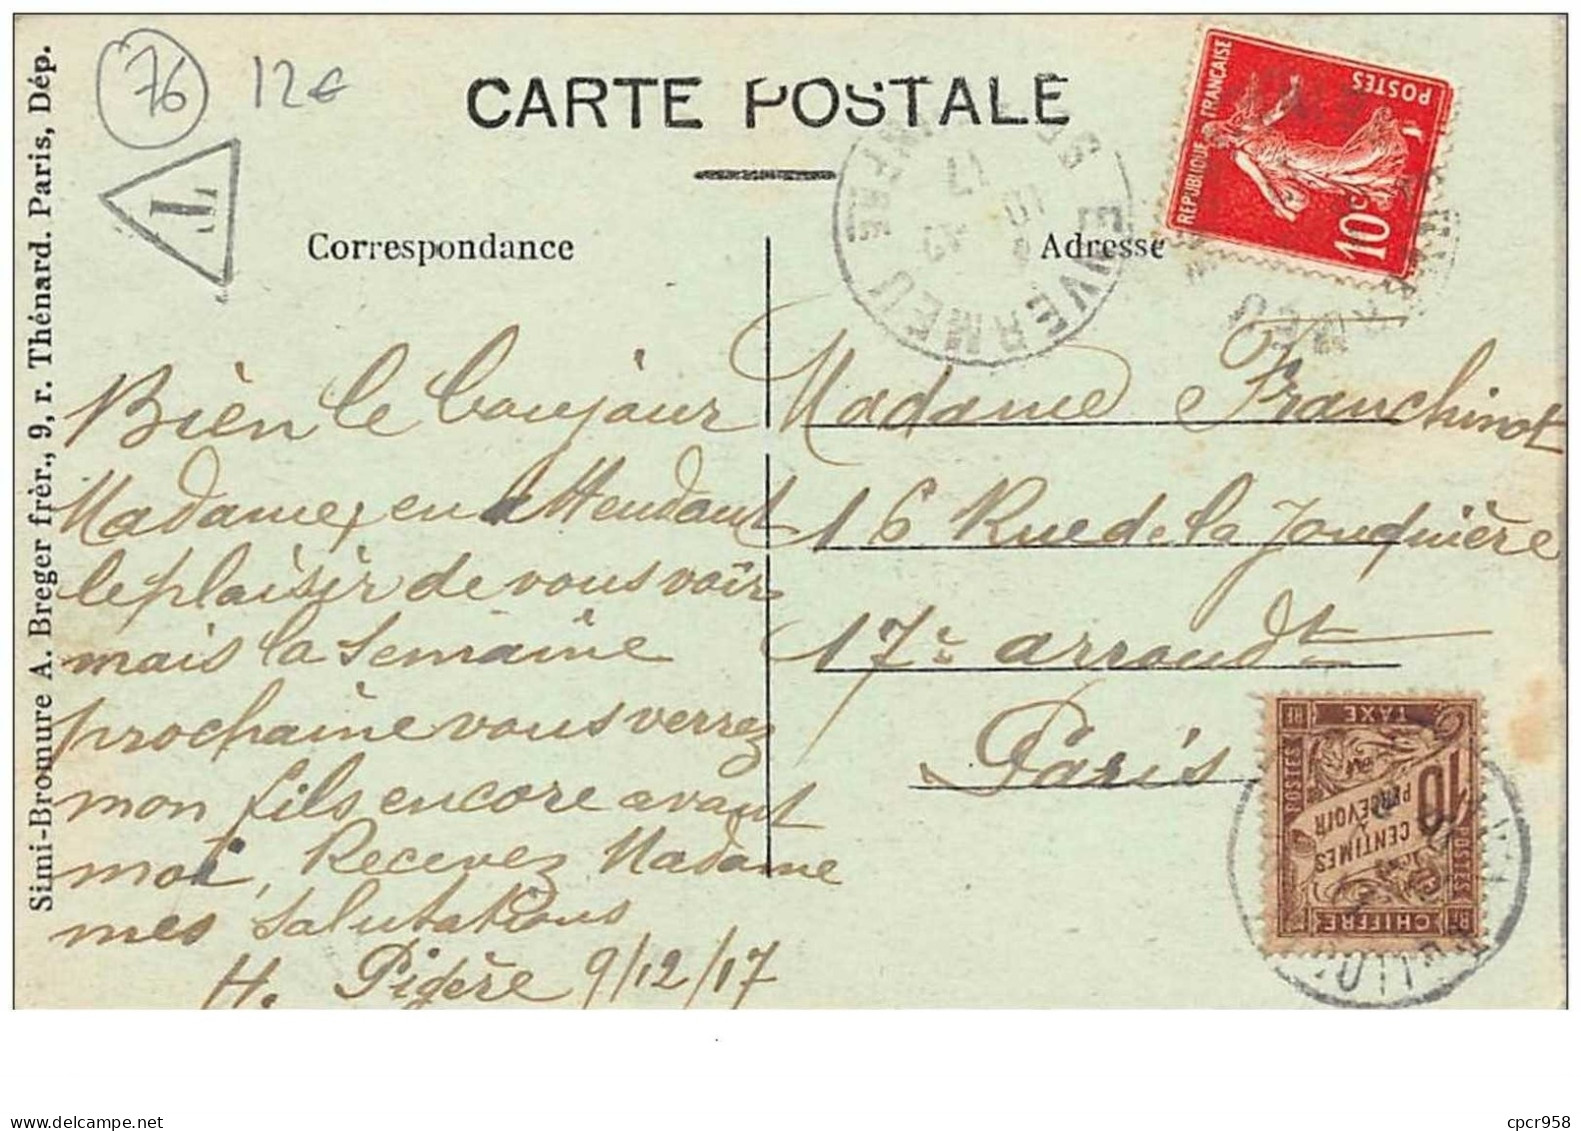 76 12€
CARTE POSTALE
T
Correspondance
Adresse
Simi-Bromure A. Breger frèr., 9, r. Thénard. Paris, Dép.
REPUBLIQUE FRANÇAISE
POSTES
10c
ENVERMEU
17
Bien le bonjour
Madame, en attendant
le plaisir de vous voir
mais la semaine
prochaine vous verrez
mon fils encore avant
moi, Recevez Madame
mes salutations
H. Pigère 9/12/17
Madame Franchinot
16 Rue de la Jonquière
17e arrondt
Paris
CHIFFRE TAXE
POSTES
10
CENTIMES
A
PERCEVOIR
RF
cpcr958